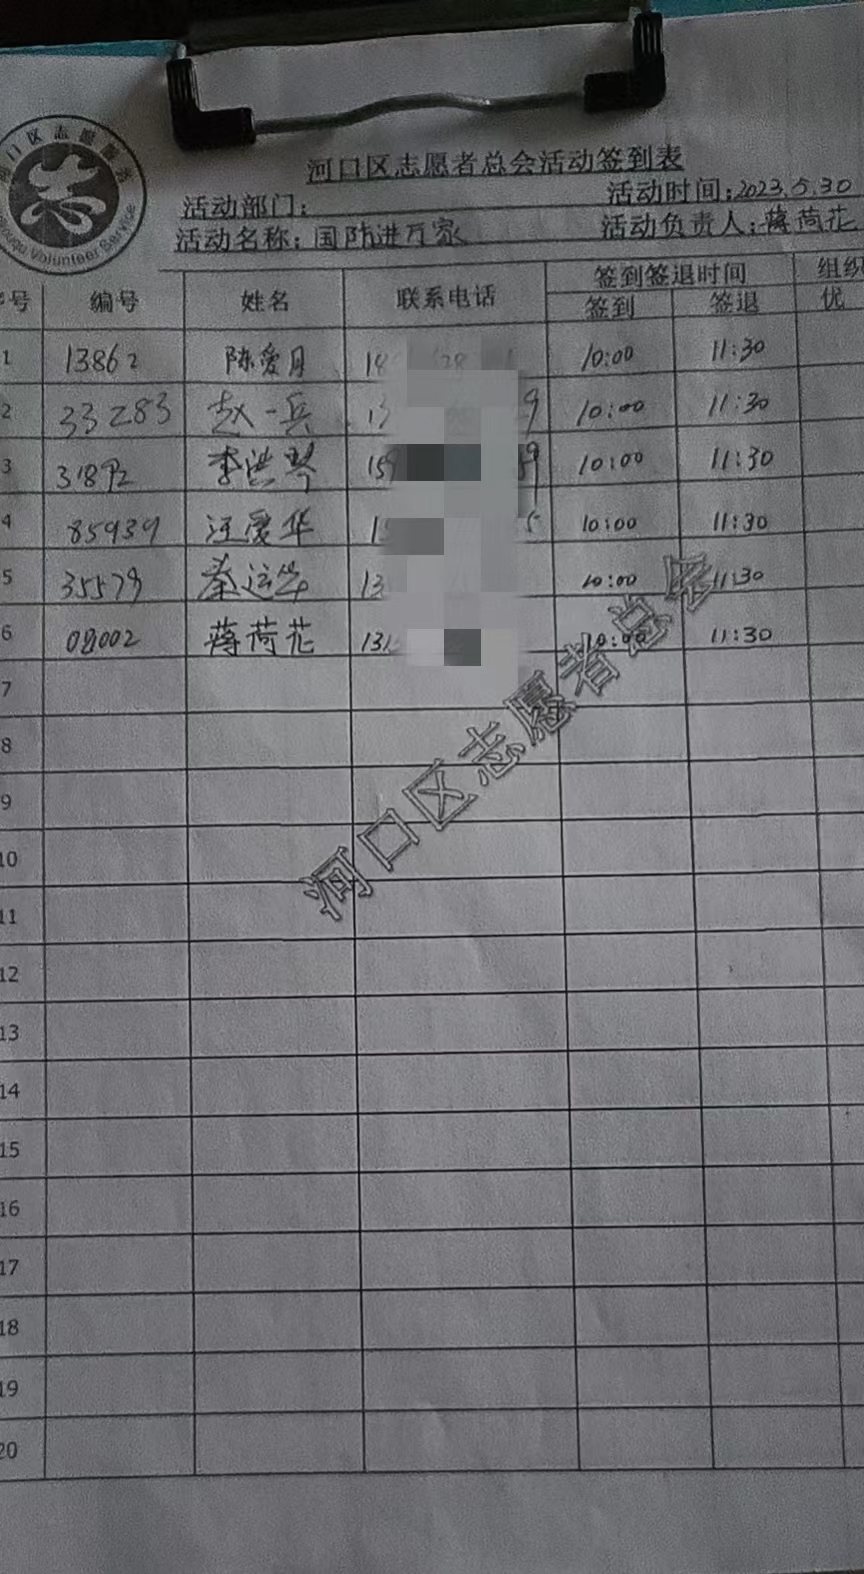 河口区志愿者总会活动签到表
活动部门: 活动时间:2023.5.30
活动名称: 国防进万家 活动负责人:蒋荷花
Volunteer Service
号 编号 姓名 联系电话 签到签退时间 组织
签到 签退 优
1 13862 陈爱月 10:00 11:30
2 33283 赵一兵 9 10:00 11:30
3 李洪琴 159 10:00 11:30
4 85939 汪爱华 10:00 11:30
5 35579 秦运华 13 10:00 11:30
6 08002 蒋荷花 131 10:00 11:30
7
8
9
10
11
12
13
14
15
16
17
18
19
20
河口区志愿者总会